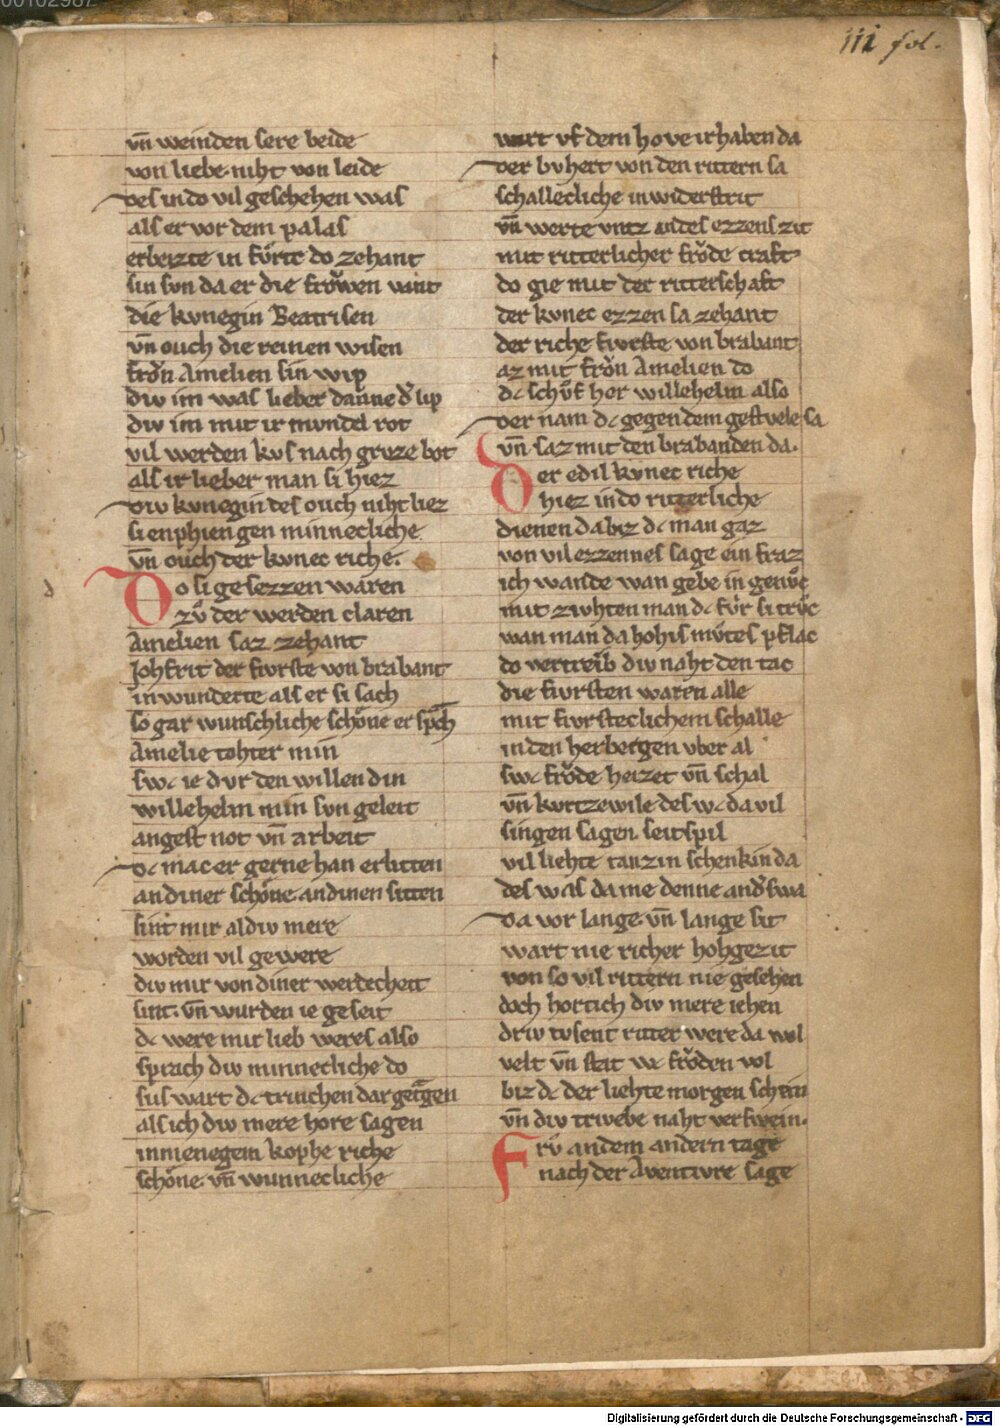 iii fol.
vn̄ weinden sere beide
von liebe niht von leide
des in do vil geschehen was
als er vor dem palas
erbeizte in fůrte do zehant
sin svn da er die frǒwen vant
die kvnegin Beatrisen
vn̄ ouch die reinen wisen
frǒn Amelien sin wip
div im was lieber danne d͛ lip
div im mit ir mvndel rot
vil werden kvs nach grvze bot
als ir lieber man si hiez
div kvnegin des ouch niht liez
si enphiengen minnecliche
vn̄ ouch der kvnec riche.
Do si gesezzen waren
zů der werden claren
Amelien saz zehant
Johfrit der fivrste von brabant
in wunderte als er si sach
so gar wunschliche schǒne er sp̄ch
Amelie tohter min
sw͛ ie dvr den willen din
willehelm min svn geleit
angest not vn̄ arbeit
dc mac er gerne han erlitten
an diner schǒne an dinen sitten
sint mir al div mere
worden vil gewere
div mir von diner werdecheit
sint. vn̄ wurden ie geseit
dc were mir lieb weres also
sprach div minnecliche do
sus wart dc trinchen dar getragen
als ich div mere hore sagen
in menegem kophe riche
schǒne. vn̄ wunnecliche
wart vf dem hove irhaben da
der bvhert von den rittern sa
schallecliche in widerstrit
vn̄ werte vntz an des ezzens zit
mit ritterlicher frǒde craft
do gie mit der ritterschaft
der kvnec ezzen sa zehant
der riche fivrste von brabant
az mit frǒn Amelien do
dc schůf her willehelm also
der nam dc gegen dem gestvele sa
vn̄ saz mit den brabanden da.
Der edil kvnec riche
hiez in do ritterliche
dienen da biz dc man gaz
von vil ezzennes sage ein fraz
ich wande wan gebe in genůc
mit zivhten man dc fůr si trůc
wan man da hohis můtes pflac
do vertreib div naht den tac
die fivrsten waren alle
mit fivrsteclichem schalle
in den herbergen vber al
swc frǒde heizet vn̄ schal
vn̄ kvrtzewile des wc da vil
singen sagen seitspil
vil liehte tanzin schenkin da
des was da me denne and͛swa
Da vor lange. vn̄ lange sit
wart nie richer hohgezit
von so vil rittern nie gesehen
doch hort ich div mere iehen
driv tvsent ritter were da wol
velt vn̄ stat wc frǒden vol
biz dc der liehte morgen schein
vn̄ div trivebe naht verswein.
Frů an dem andern tage
nach der Aventivre sage
Digitalisierung gefördert durch die Deutsche Forschungsgemeinschaft - DFG